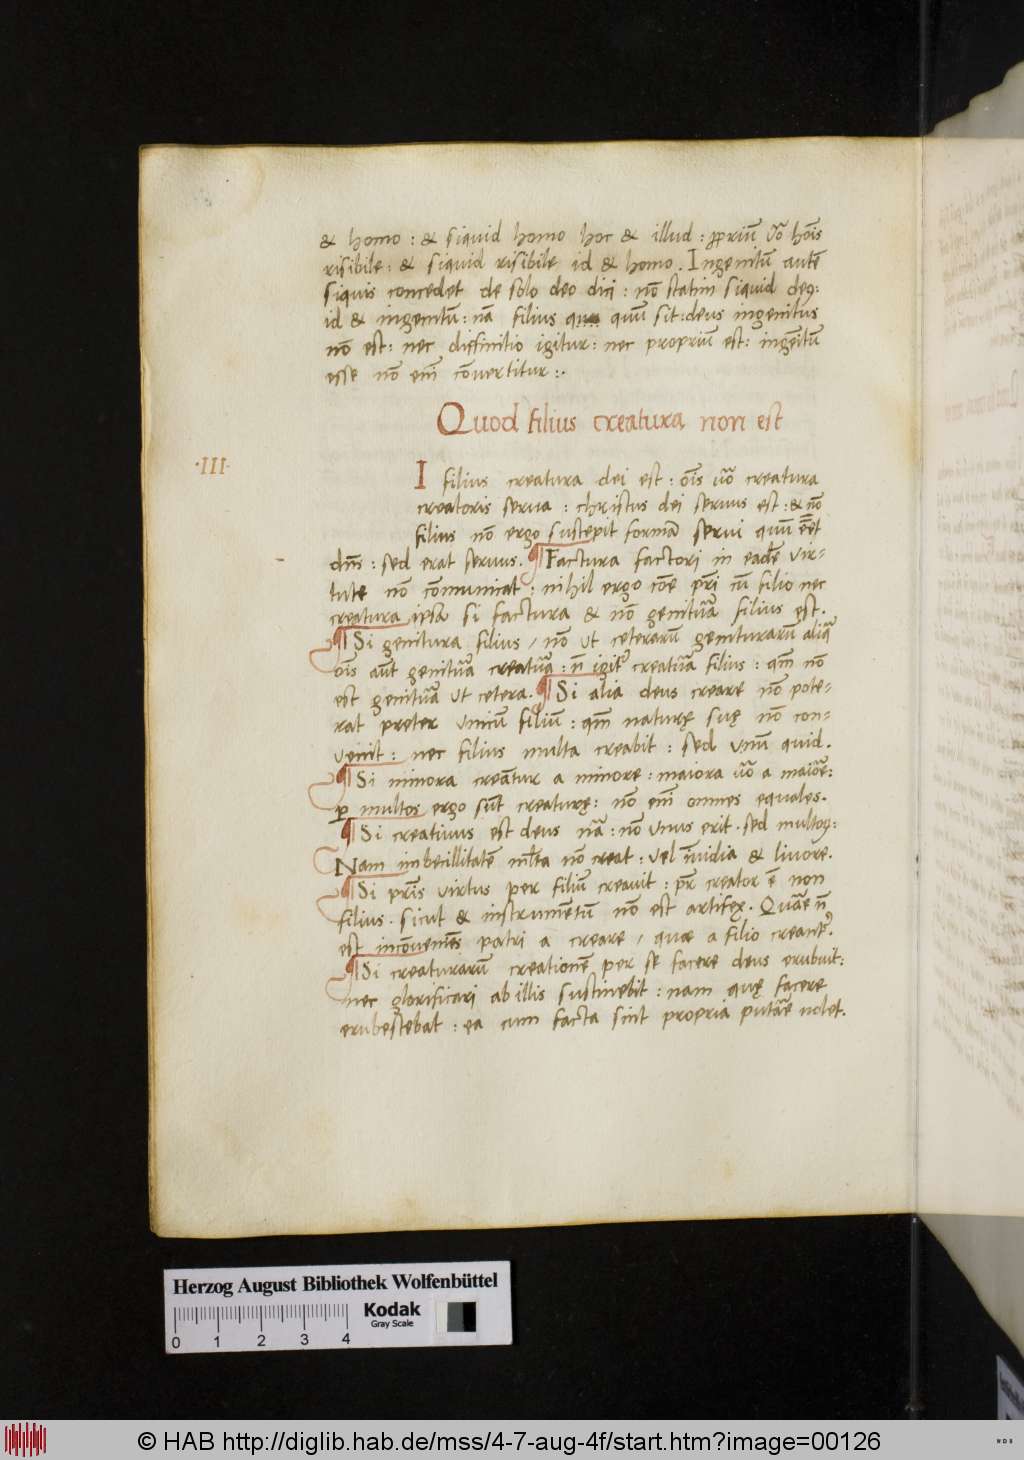 & homo : & siquid homo hoc & illud : ꝓpriū ṽo hoı̃s
risibile : & siquid risibile id & homo . Ingenitū autẽ
siquis concedet de solo deo dici : nõ statim siquid deꝰ :
id & ingenitū : nã filius quū sit : deus ingenitus
nõ est : nec diffinitio igitur : nec propriū est : ingẽitū
esse nõ em̃ cõuertitur :.
Quod filius creatura non est
·III·
I filius creatura dei est : oı̃s ṽo creatura
creatoris serua : christus dei seruus est : & nõ
filius nõ ergo suscepit formã serui quū eẽt
dñs : sed erat seruus . ¶ Factura factori in eadẽ vir=
tute nõ cõmunicat : nihil ergo cõe pr̃i cũ filio nec
creatura ipsa si factura & nõ genitũa filius est .
¶ Si genitura filius / nõ ut ceterarũ geniturarũ aliq̃
oı̃s aũt genitũa creatũa : ñ igit᷑ creatũa filius : qm̃ nõ
est genitũa ut cetera . ¶ Si alia deus creare nõ pote=
rat preter unicũ filiũ : qm̃ naturę suę nõ con=
uenit : nec filius multa creabit : sed unũ quid .
¶ Si minora creãtur a minore : maiora ṽo a maiõe :
ꝑ multos ergo sũt creaturę : nõ em̃ omnes equales .
¶ Si creatiuus est deus nã : nõ unus erit . sed multoꝝ :
Nam imbecillitatẽ ml̃ta nõ creat : vel ı̃nuidia & liuore .
¶ Si pr̃is virtus per filiũ creauit : pr̃ creator ẽ non
filius . sicut & instrumẽtũ nõ est artifex . Quãe ñ
est incõueniẽs patri a creare / quæ a filio creant᷑ .
¶ Si creaturarũ creationẽ per se facere deus erubuit :
nec glorificari ab illis sustinebit : nam quę facere
erubescebat : ea cum facta sint propria putãe nolet .
Herzog August Bibliothek Wolfenbüttel
Kodak
Gray Scale
0 1 2 3 4
© HAB http://diglib.hab.de/mss/4-7-aug-4f/start.htm?image=00126